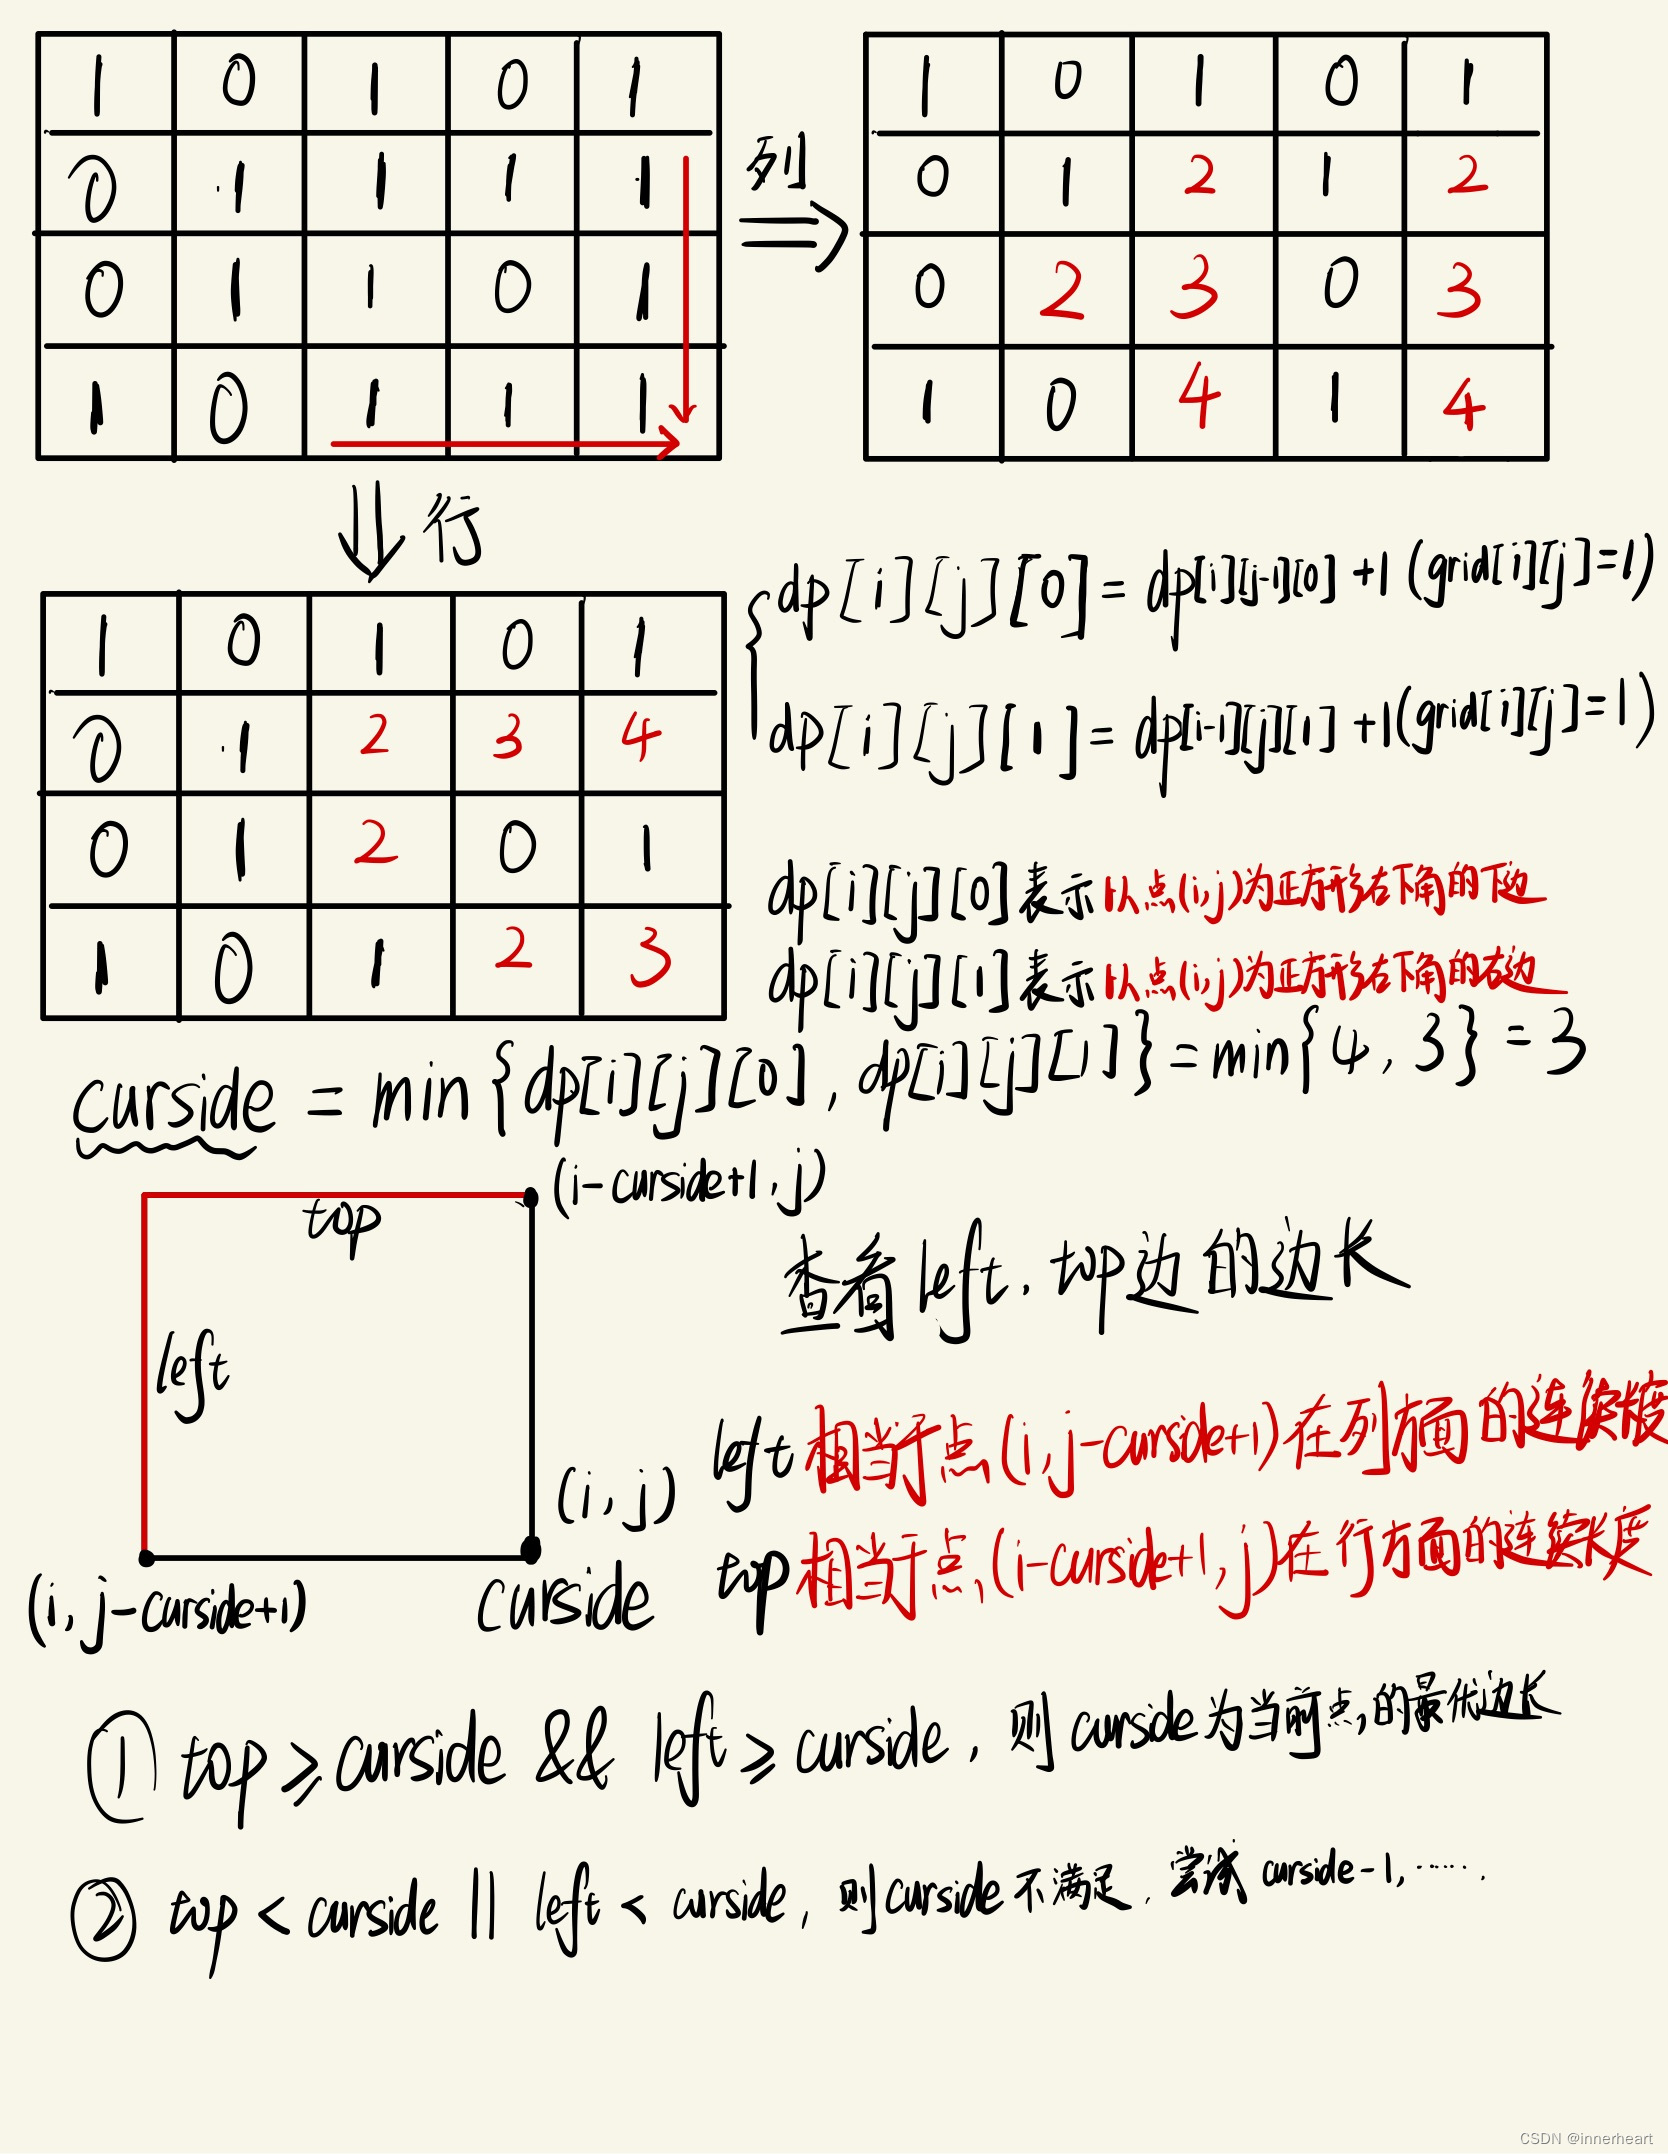 1 0 1 0 1
0 1 1 1 1
0 1 1 0 1
1 0 1 1 1
列
1 0 1 0 1
0 1 2 1 2
0 2 3 0 3
1 0 4 1 4
行
1 0 1 0 1
0 1 2 3 4
0 1 2 0 1
1 0 1 2 3
dp[i][j][0] = dp[i][j-1][0] +1 (grid[i][j]=1)
dp[i][j][1] = dp[i-1][j][1] +1(grid[i][j]=1)
dp[i][j][0]表示以点(i,j)为正方形右下角的下边
dp[i][j][1]表示以点(i,j)为正方形右下角的右边
curside = min{dp[i][j][0], dp[i][j][1]}=min{4, 3}=3
(i-curside+1, j)
top
left
(i, j)
(i, j-curside+1)
curside
查看left, top边的边长
left相当于点(i, j-curside+1)在列方面的连续长度
top相当于点(i-curside+1, j)在行方面的连续长度
① top≥curside && left≥curside, 则curside为当前点的最优边长
② top<curside || left<curside, 则curside不满足, 尝试curside-1, ……
CSDN @innerheart